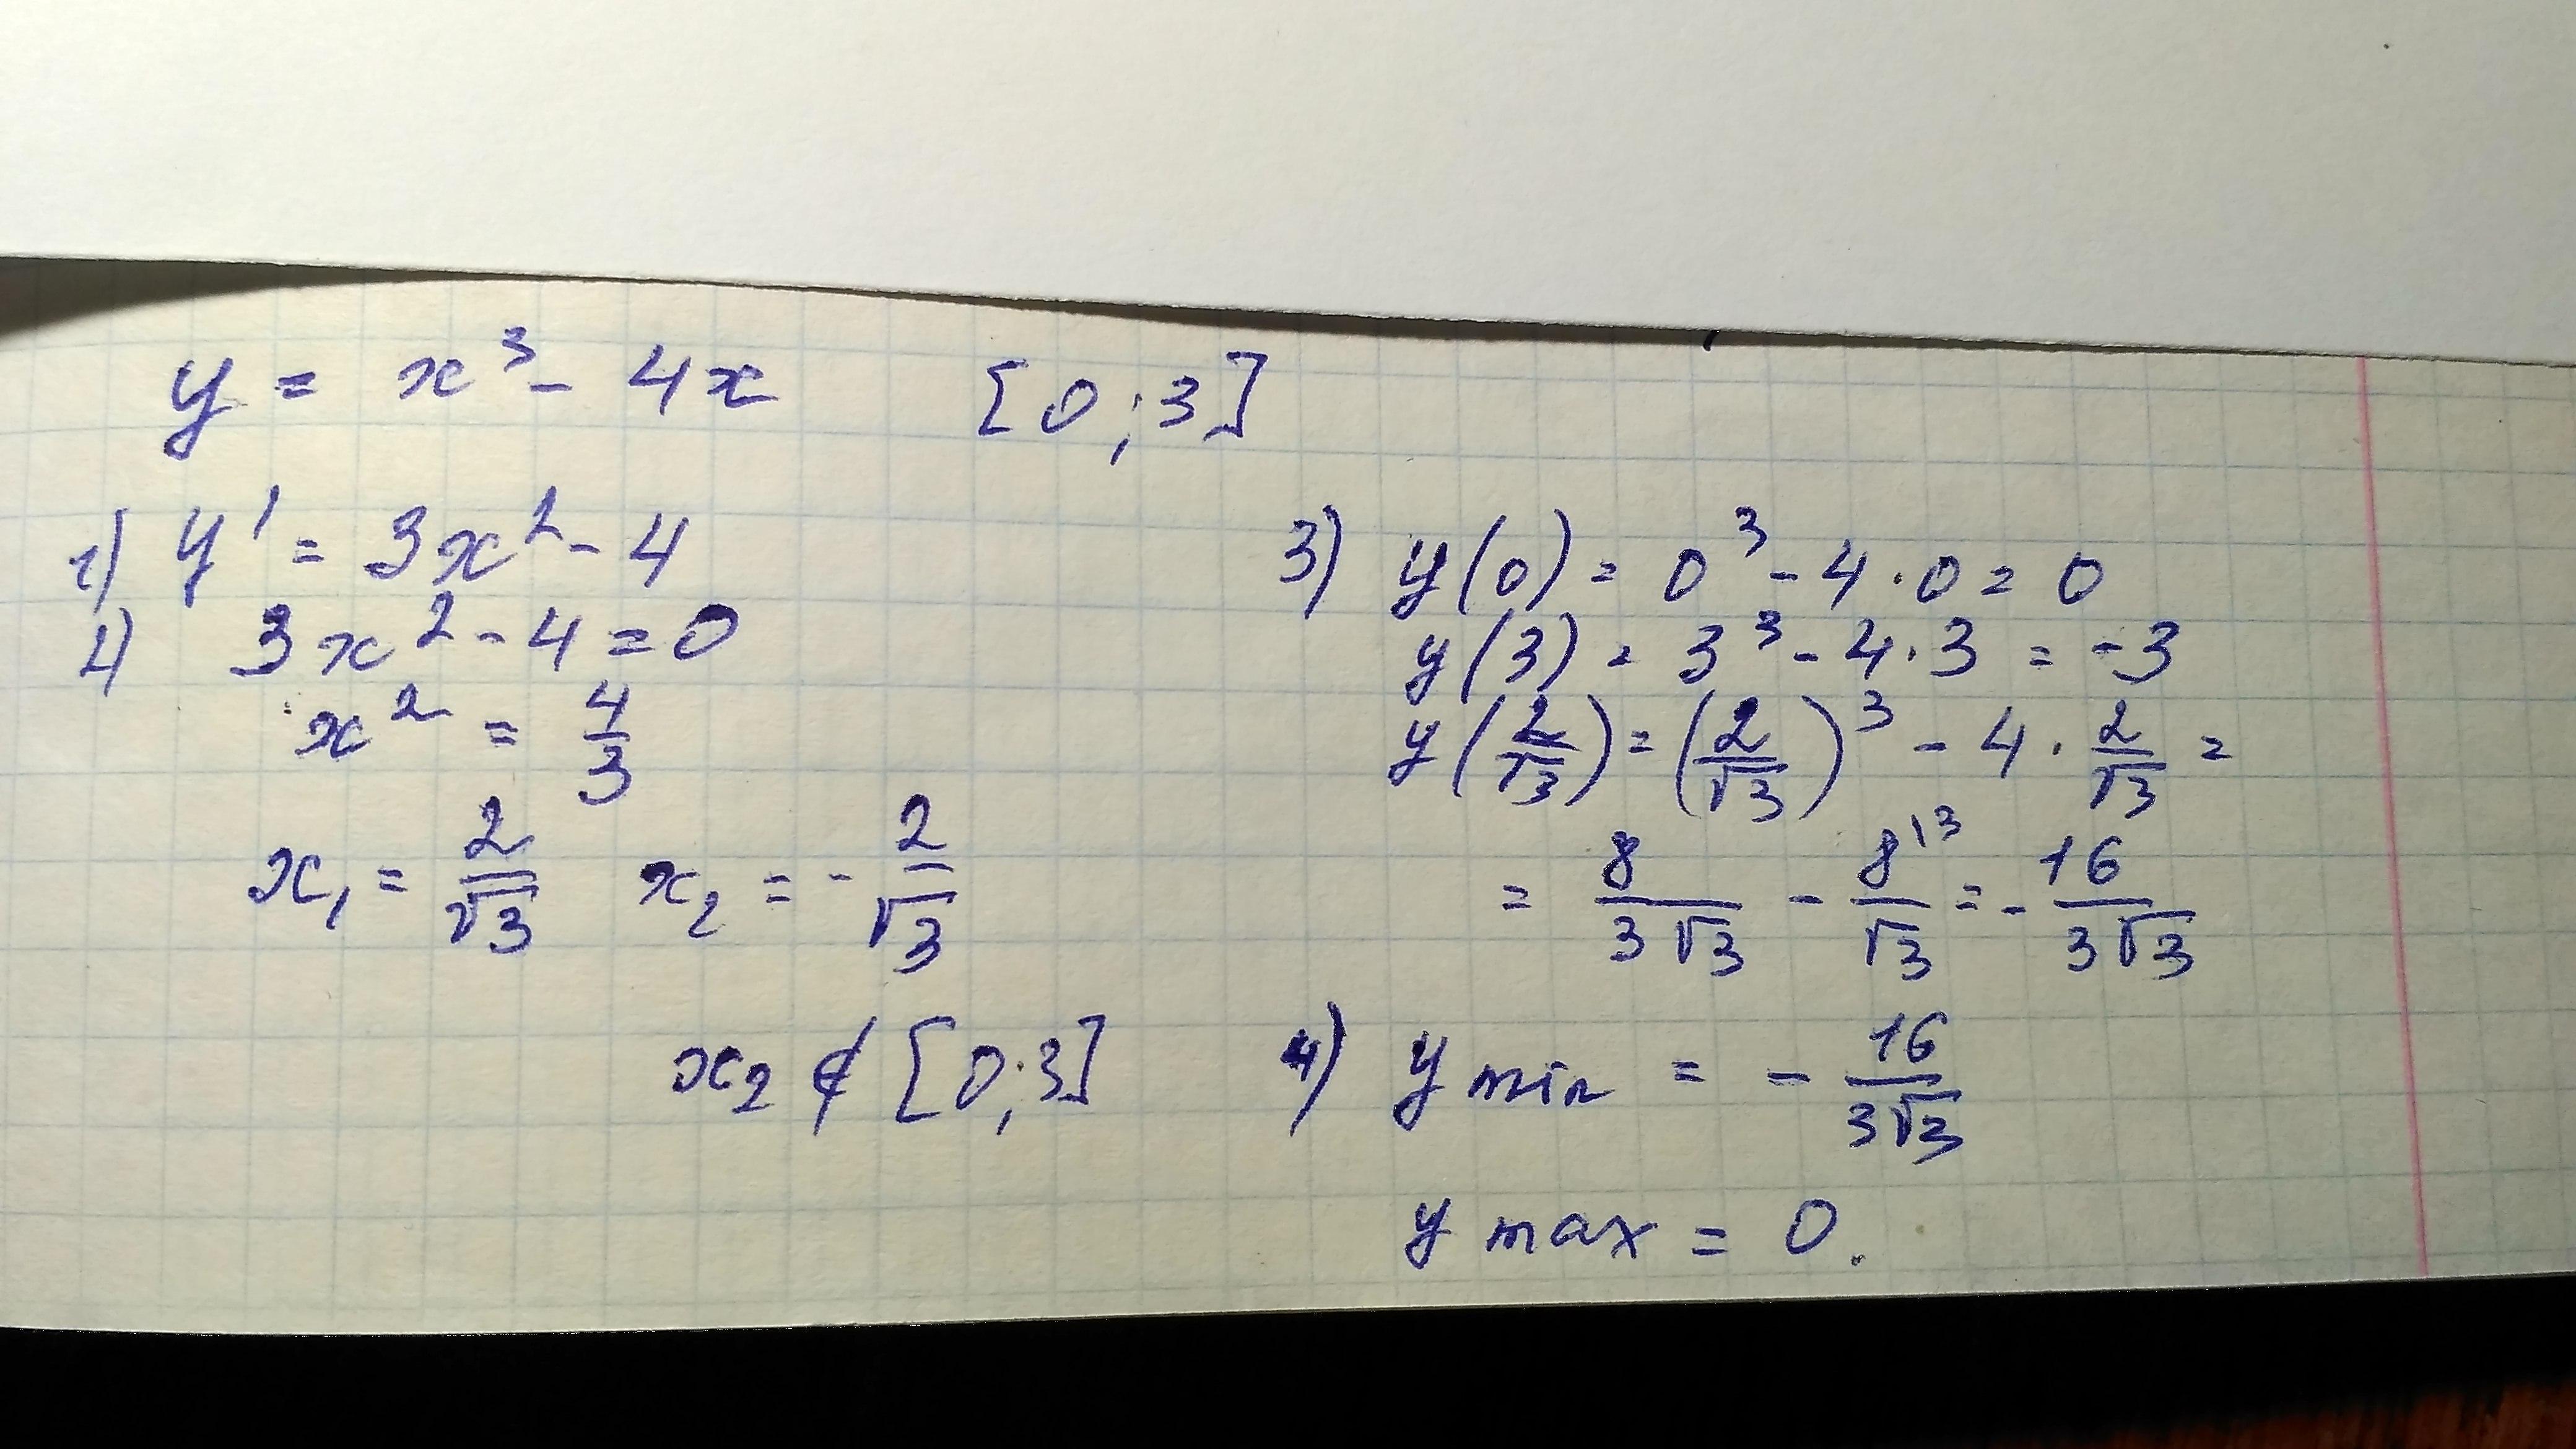 y = x³ - 4x [0;3]
1) y' = 3x² - 4
2) 3x² - 4 = 0
x² = 4/3
x₁ = 2/√3 x₂ = - 2/√3
x₂ ∉ [0;3]
3) y(0) = 0³ - 4 · 0 = 0
y(3) = 3³ - 4 · 3 = -3
y(2/√3) = (2/√3)³ - 4 · 2/√3 =
= 8/3√3 - 8\3/√3 = - 16/3√3
4) y min = - 16/3√3
y max = 0.